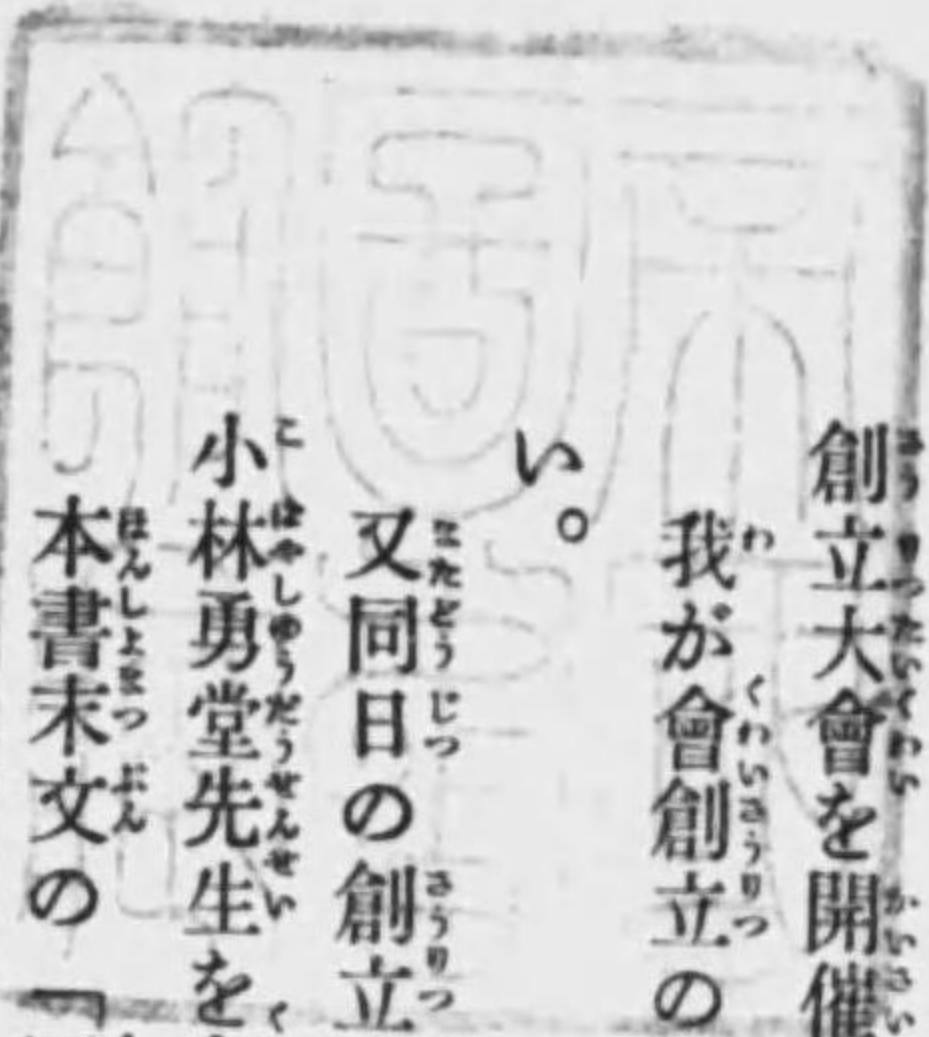 創立大會を開催
我が會創立の
い。
又同日の創立
小林勇堂先生を
本書末文の「